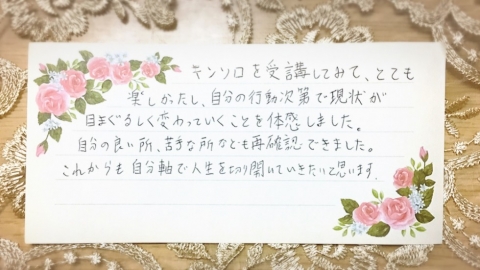 テンソロを受講してみて、とても
楽しかたし、自分の行動次第で現状が
目まぐるしく変わっていくことを体感しました。
自分の良い所、苦手な所なども再確認できました。
これからも自分軸で人生を切り開いていきたいて思います.